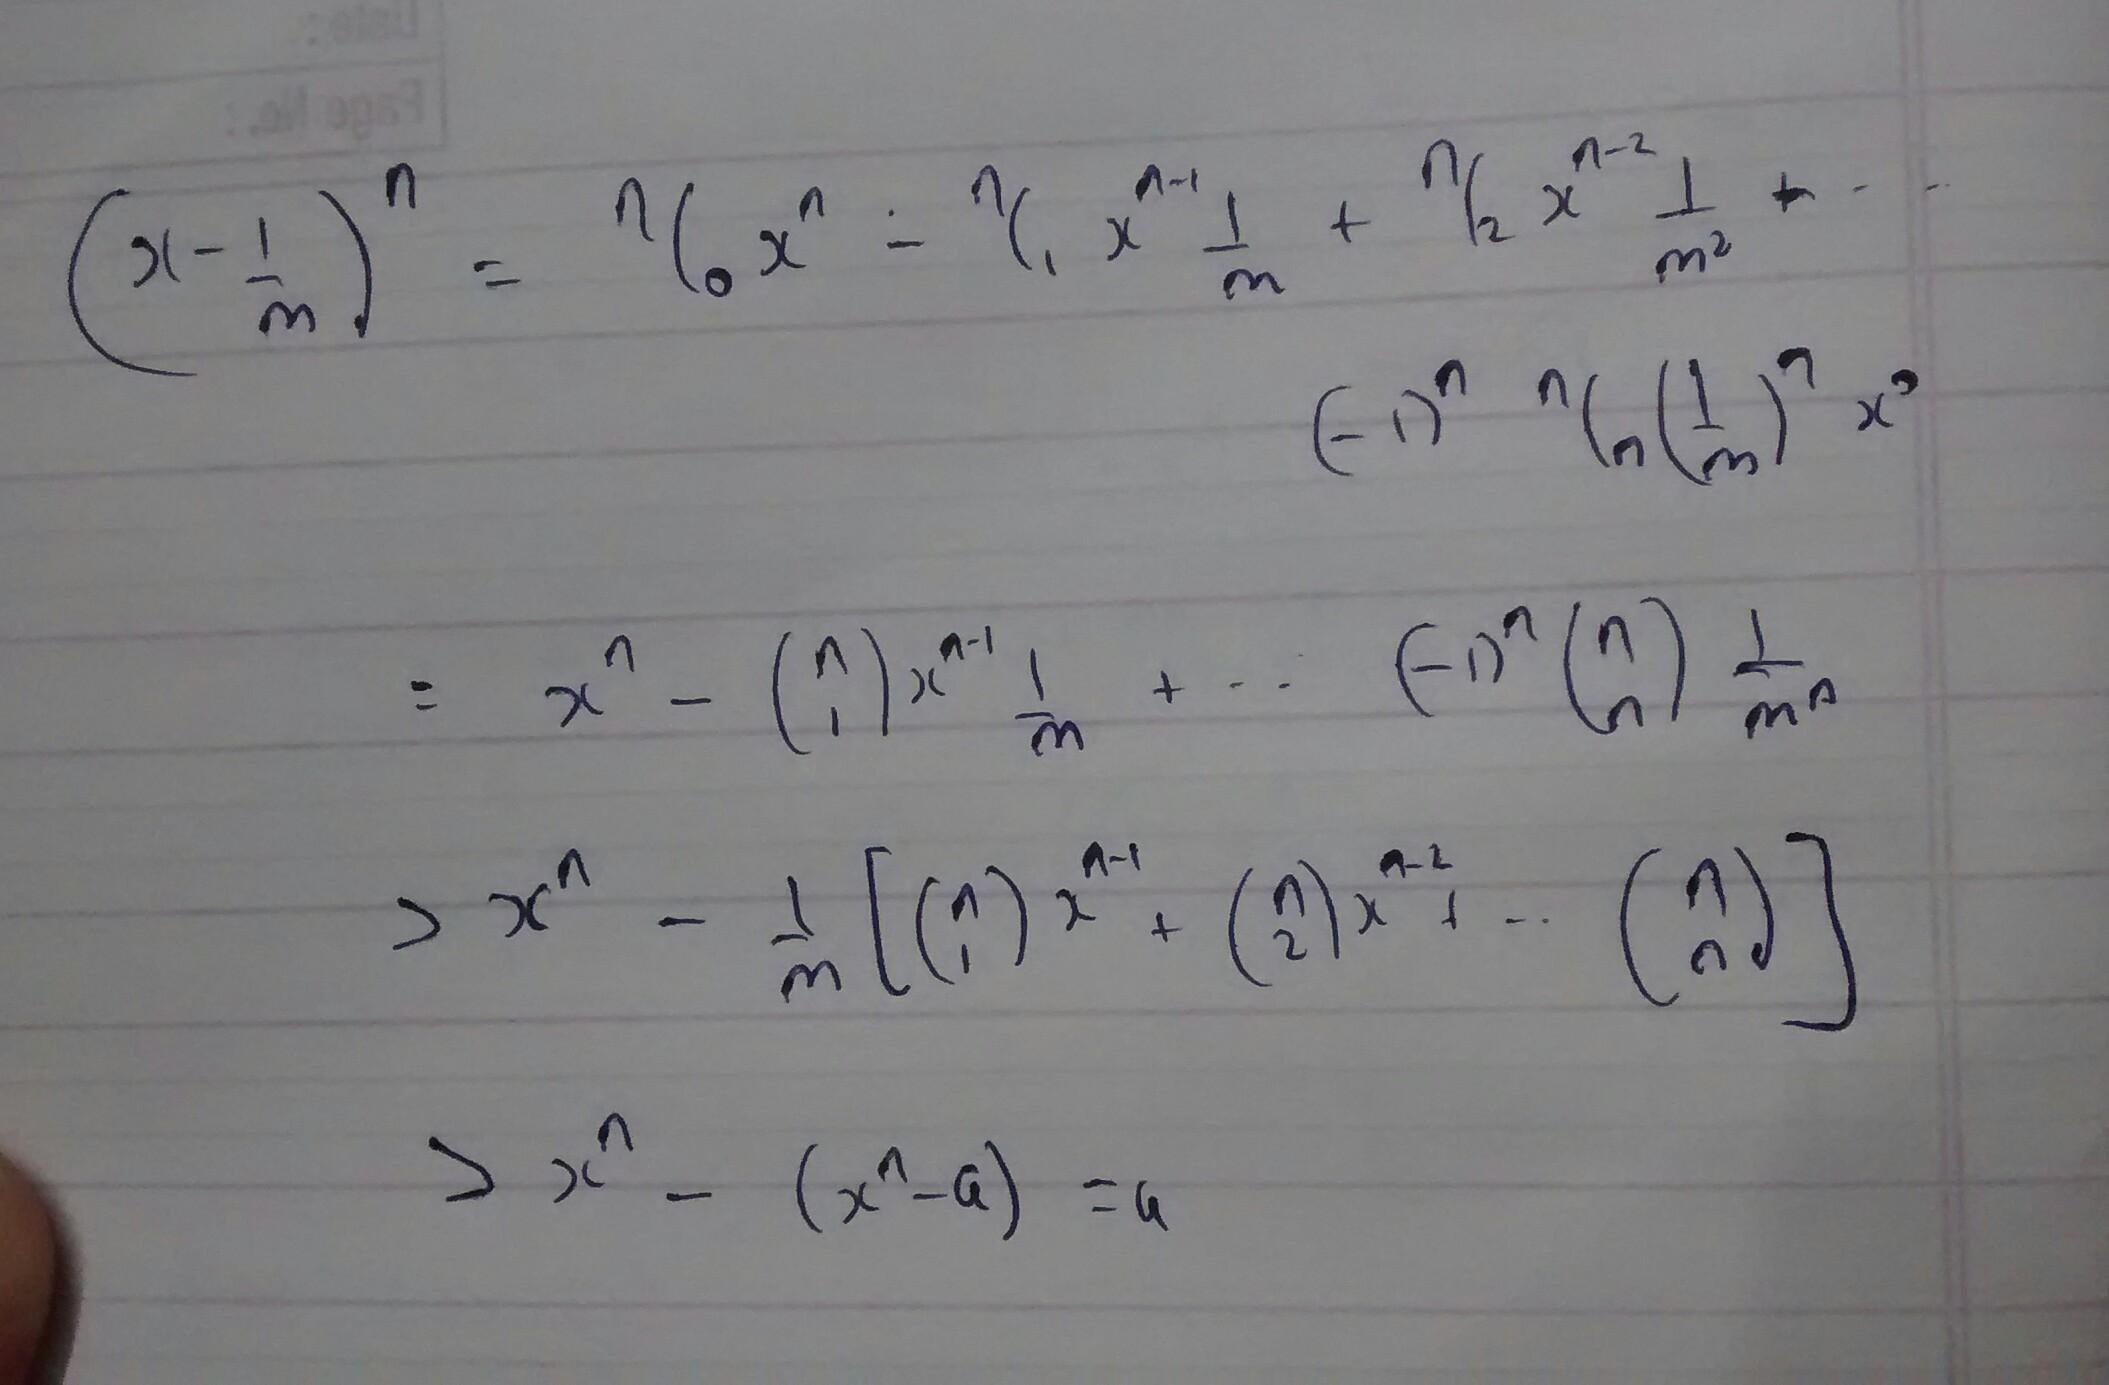 Date:
Page No.:
(x - 1/m)^n = ⁿC₀ xⁿ - ⁿC₁ xⁿ⁻¹ 1/m + ⁿC₂ xⁿ⁻² 1/m² + - ..
(-1)ⁿ ⁿCₙ (1/m)ⁿ x⁰
= xⁿ - (n 1) xⁿ⁻¹ 1/m + - .. (-1)ⁿ (n n) 1/mⁿ
> xⁿ - 1/m [(n 1) xⁿ⁻¹ + (n 2) xⁿ⁻² + - .. (n n)]
> xⁿ - (xⁿ - a) = a